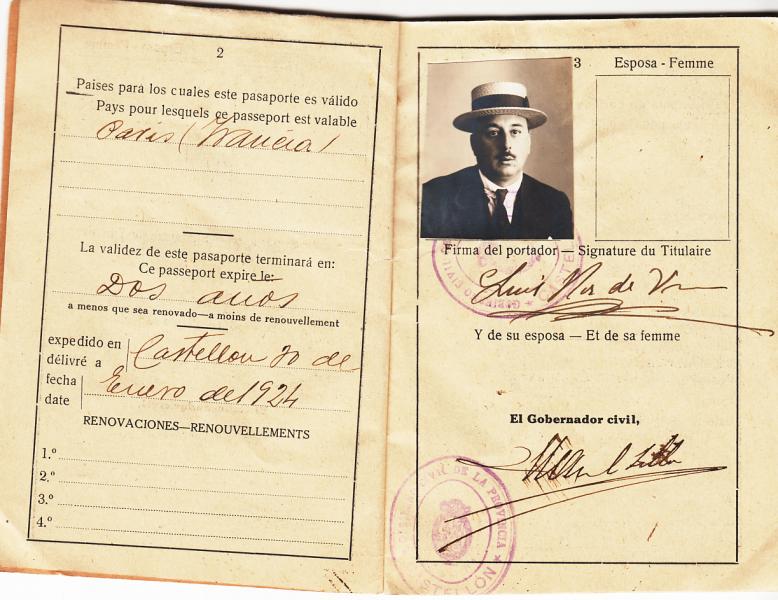 2
Paises para los cuales este pasaporte es válido
Pays pour lesquels ce passeport est valable
Paris (Francia)
La validez de este pasaporte terminará en:
Ce passeport expire le:
Dos años
a menos que sea renovado—a moins de renouvellement
expedido en
délivré a
Castellon 30 de
fecha
date
Enero de 1924
RENOVACIONES—RENOUVELLEMENTS
1.º
2.º
3.º
4.º
3
Esposa - Femme
Firma del portador — Signature du Titulaire
Luis de
Y de su esposa — Et de sa femme
El Gobernador civil,
CIVIL DE LA PROVINCIA